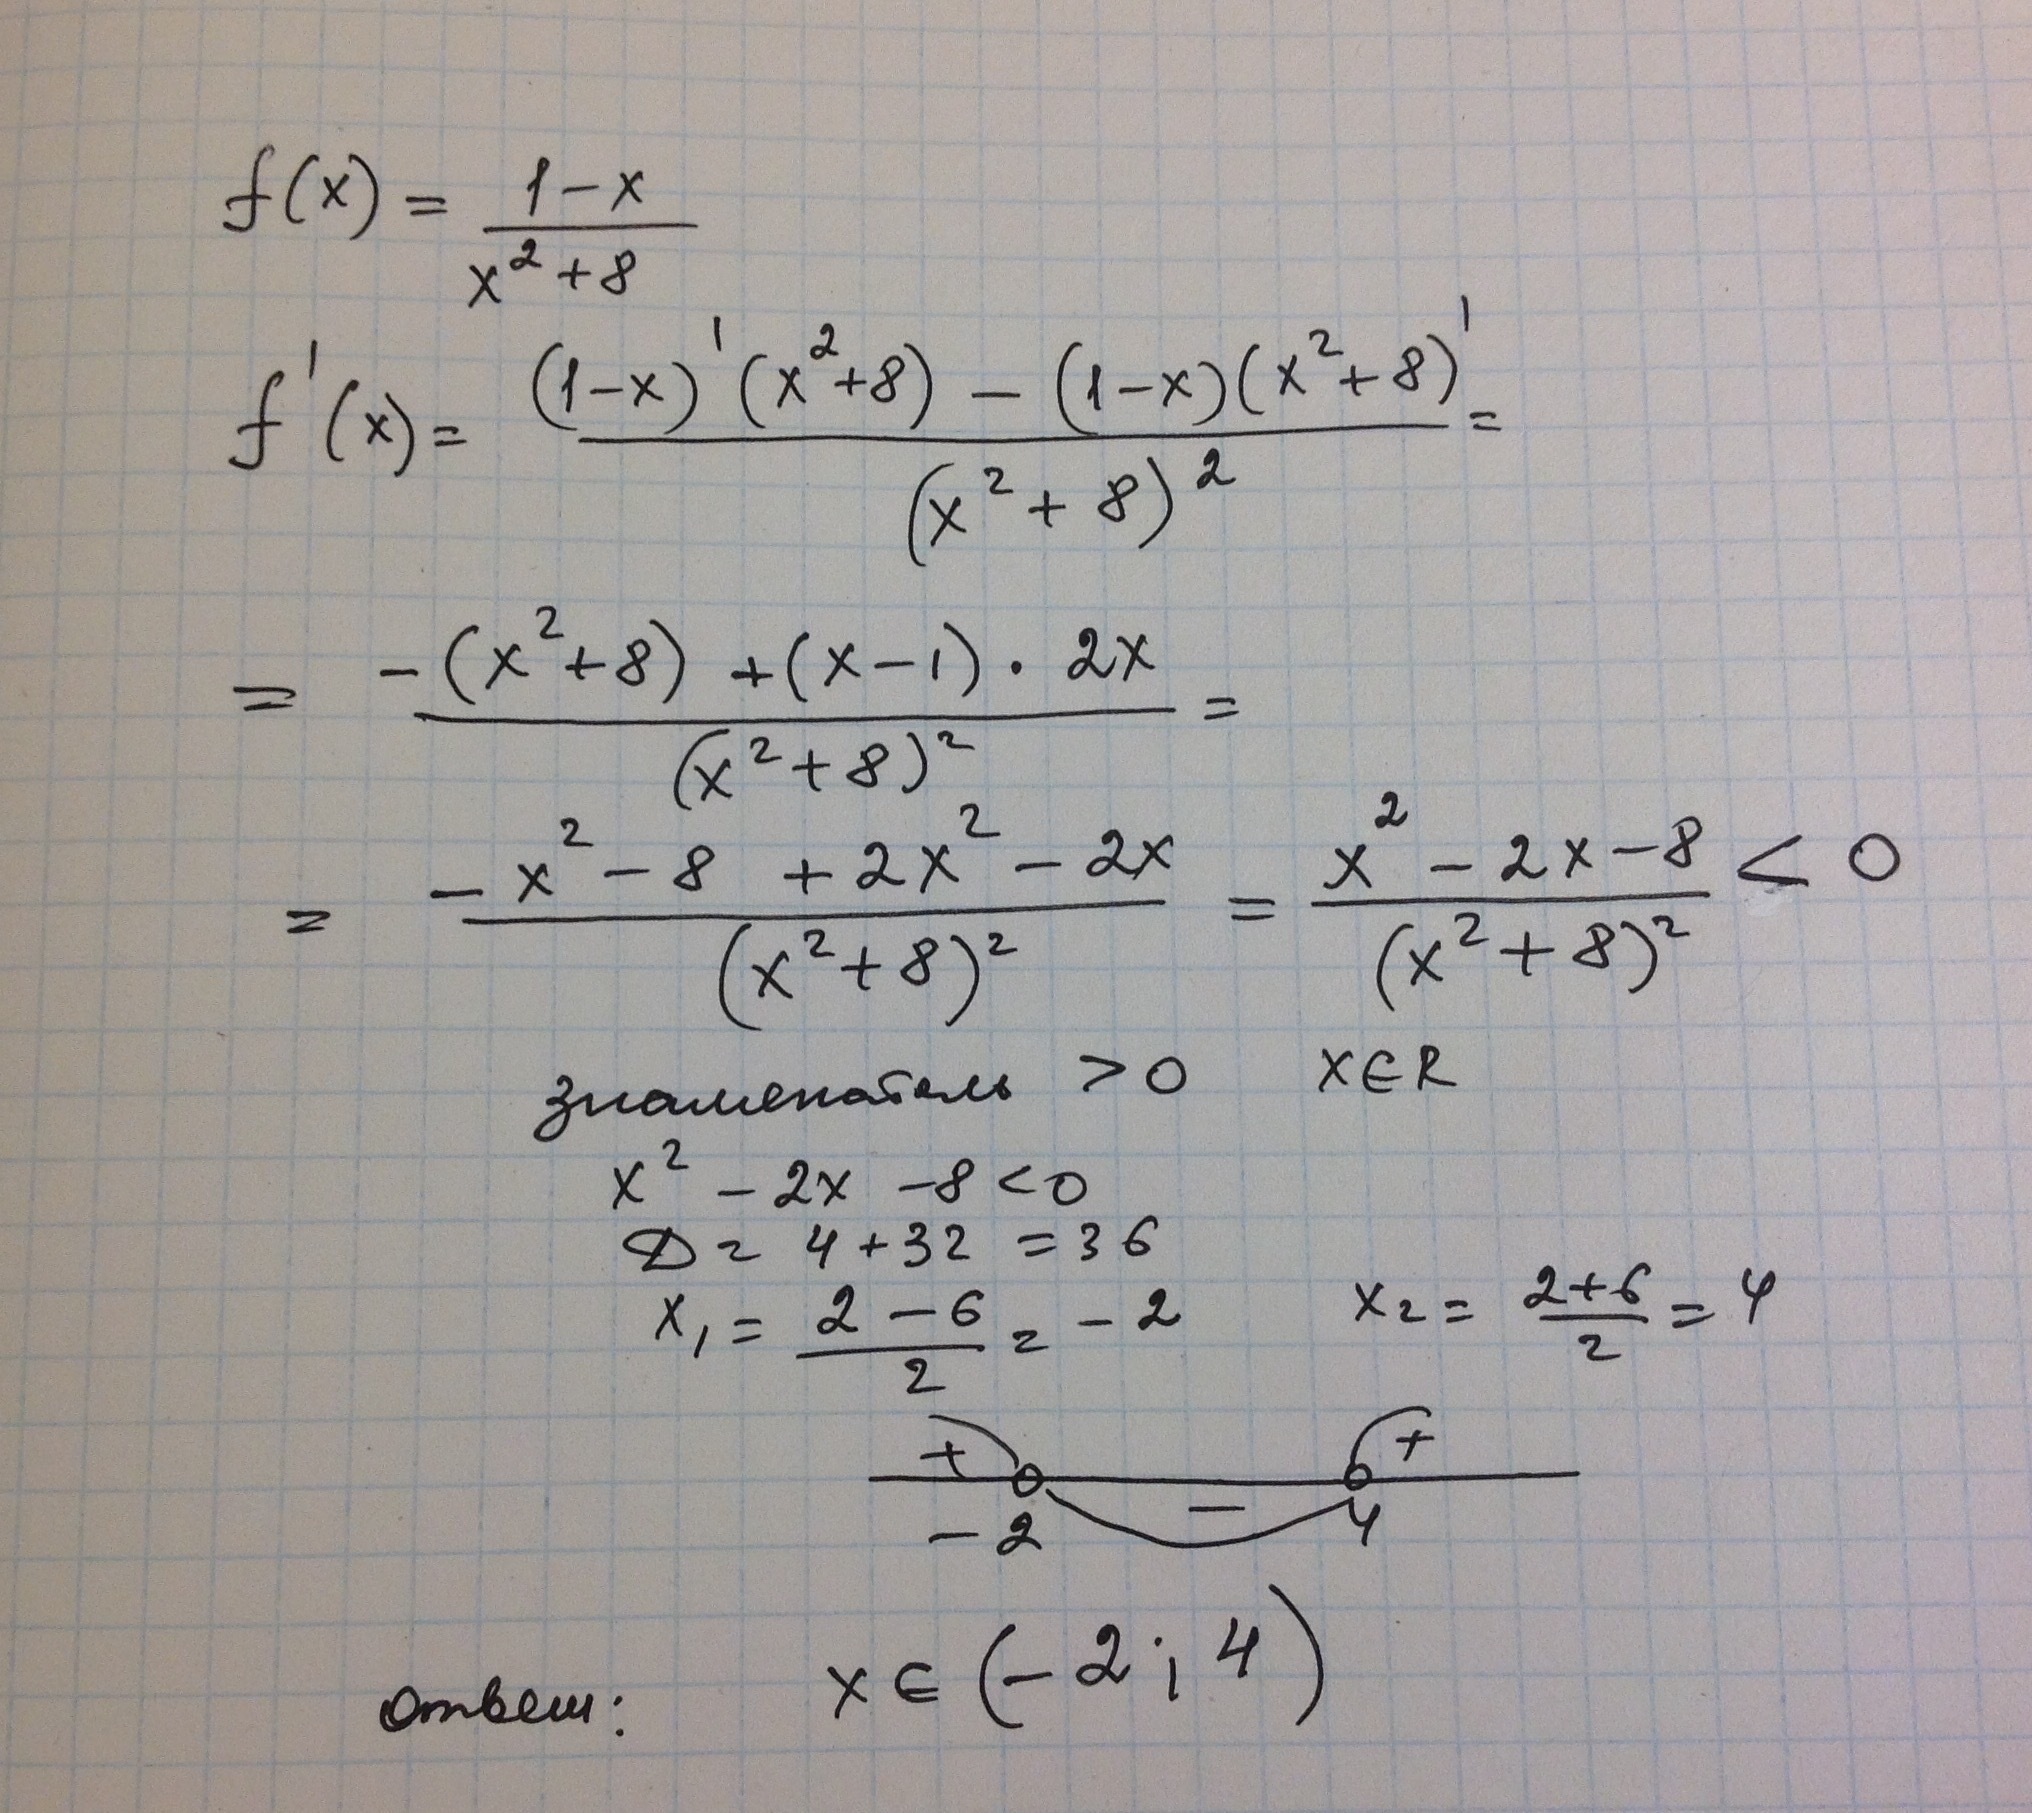 f(x) = (1-x)/(x²+8)
f'(x) = ((1-x)'(x²+8) - (1-x)(x²+8)')/(x²+8)² =
= (-(x²+8) + (x-1)·2x)/(x²+8)² =
= (-x²-8+2x²-2x)/(x²+8)² = (x²-2x-8)/(x²+8)² < 0
знаменатель > 0 x∈R
x² - 2x - 8 < 0
D = 4+32 = 36
x₁ = (2-6)/2 = -2 x₂ = (2+6)/2 = 4
+ - +
-2 4
ответ: x ∈ (-2; 4)